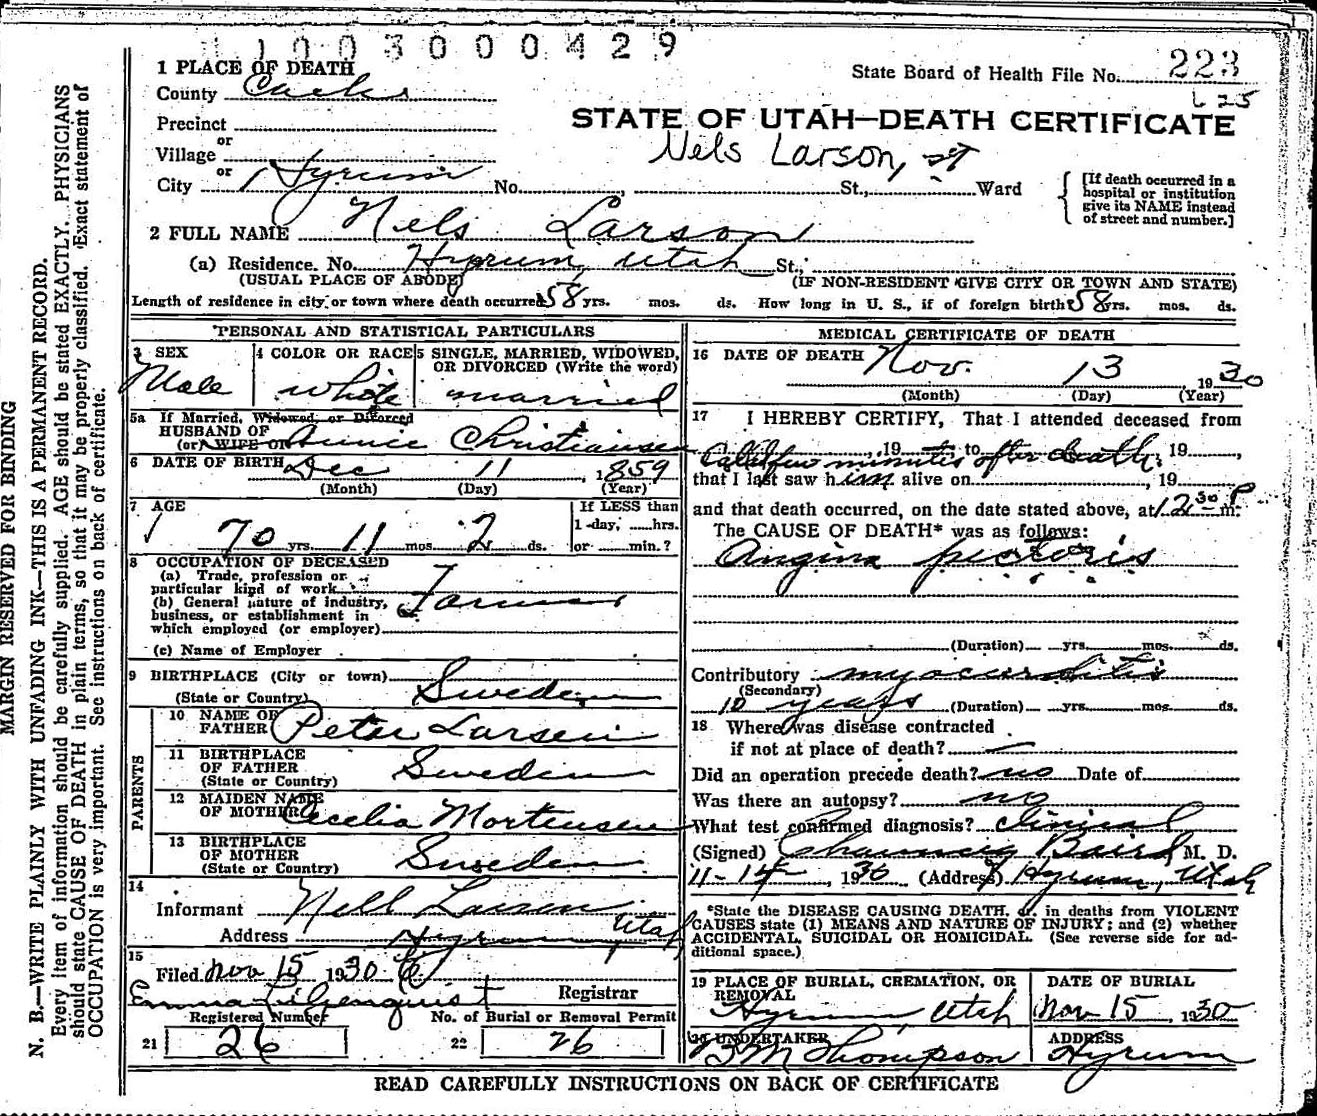 1003000429
1 PLACE OF DEATH
State Board of Health File No. 223
County Cache
L 25
STATE OF UTAH—DEATH CERTIFICATE
Precinct
or
Village
Nels Larson, sr
or
City Hyrum No. , St., Ward
[If death occurred in a
hospital or institution
give its NAME instead
of street and number.]
2 FULL NAME Nels Larson
(a) Residence. No. Hyrum, Utah St.,
(USUAL PLACE OF ABODE) (IF NON-RESIDENT GIVE CITY OR TOWN AND STATE)
Length of residence in city or town where death occurred 58 yrs. mos. ds. How long in U. S., if of foreign birth 58 yrs. mos. ds.
PERSONAL AND STATISTICAL PARTICULARS
3 SEX
Male
4 COLOR OR RACE
white
5 SINGLE, MARRIED, WIDOWED,
OR DIVORCED (Write the word)
married
5a If Married, Widowed, or Divorced
HUSBAND OF
(or) WIFE OF Annie Christiansen
6 DATE OF BIRTH Dec 11, 1859
(Month) (Day) (Year)
7 AGE
70 yrs. 11 mos. 2 ds.
If LESS than
1 day, hrs.
or min.?
8 OCCUPATION OF DECEASED
(a) Trade, profession or
particular kind of work
(b) General nature of industry,
business, or establishment in
which employed (or employer)
Farmer
(c) Name of Employer
9 BIRTHPLACE (City or town)
(State or Country) Sweden
PARENTS
10 NAME OF
FATHER Peter Larsen
11 BIRTHPLACE
OF FATHER
(State or Country) Sweden
12 MAIDEN NAME
OF MOTHER Cecelia Mortensen
13 BIRTHPLACE
OF MOTHER
(State or Country) Sweden
14
Informant Nell Larsen
Address Hyrum, Utah
15
Filed Nov 15 1930
Emma Liljenquist Registrar
Registered Number No. of Burial or Removal Permit
21 26 22 26
MEDICAL CERTIFICATE OF DEATH
16 DATE OF DEATH Nov. 13, 1930
(Month) (Day) (Year)
17 I HEREBY CERTIFY, That I attended deceased from
Called few minutes after death. , 19 to , 19 ,
that I last saw him alive on , 19
and that death occurred, on the date stated above, at 12 30 P m.
The CAUSE OF DEATH* was as follows:
Angina pectoris
(Duration) yrs. mos. ds.
Contributory myocarditis
(Secondary)
10 years (Duration) yrs. mos. ds.
18 Where was disease contracted
if not at place of death? —
Did an operation precede death? no Date of
Was there an autopsy? no
What test confirmed diagnosis? Clinical
(Signed) Chauncey Baird, M. D.
11-14-, 1930 (Address) Hyrum, Utah
*State the DISEASE CAUSING DEATH, or, in deaths from VIOLENT
CAUSES state (1) MEANS AND NATURE OF INJURY; and (2) whether
ACCIDENTAL, SUICIDAL OR HOMICIDAL. (See reverse side for ad-
ditional space.)
19 PLACE OF BURIAL, CREMATION, OR
REMOVAL
Hyrum, Utah
DATE OF BURIAL
Nov 15, 1930
20 UNDERTAKER
Thompson
ADDRESS
Hyrum
READ CAREFULLY INSTRUCTIONS ON BACK OF CERTIFICATE
MARGIN RESERVED FOR BINDING
N. B.—WRITE PLAINLY WITH UNFADING INK—THIS IS A PERMANENT RECORD.
Every item of information should be carefully supplied. AGE should be stated EXACTLY. PHYSICIANS
should state CAUSE OF DEATH in plain terms, so that it may be properly classified. Exact statement of
OCCUPATION is very important. See instructions on back of certificate.